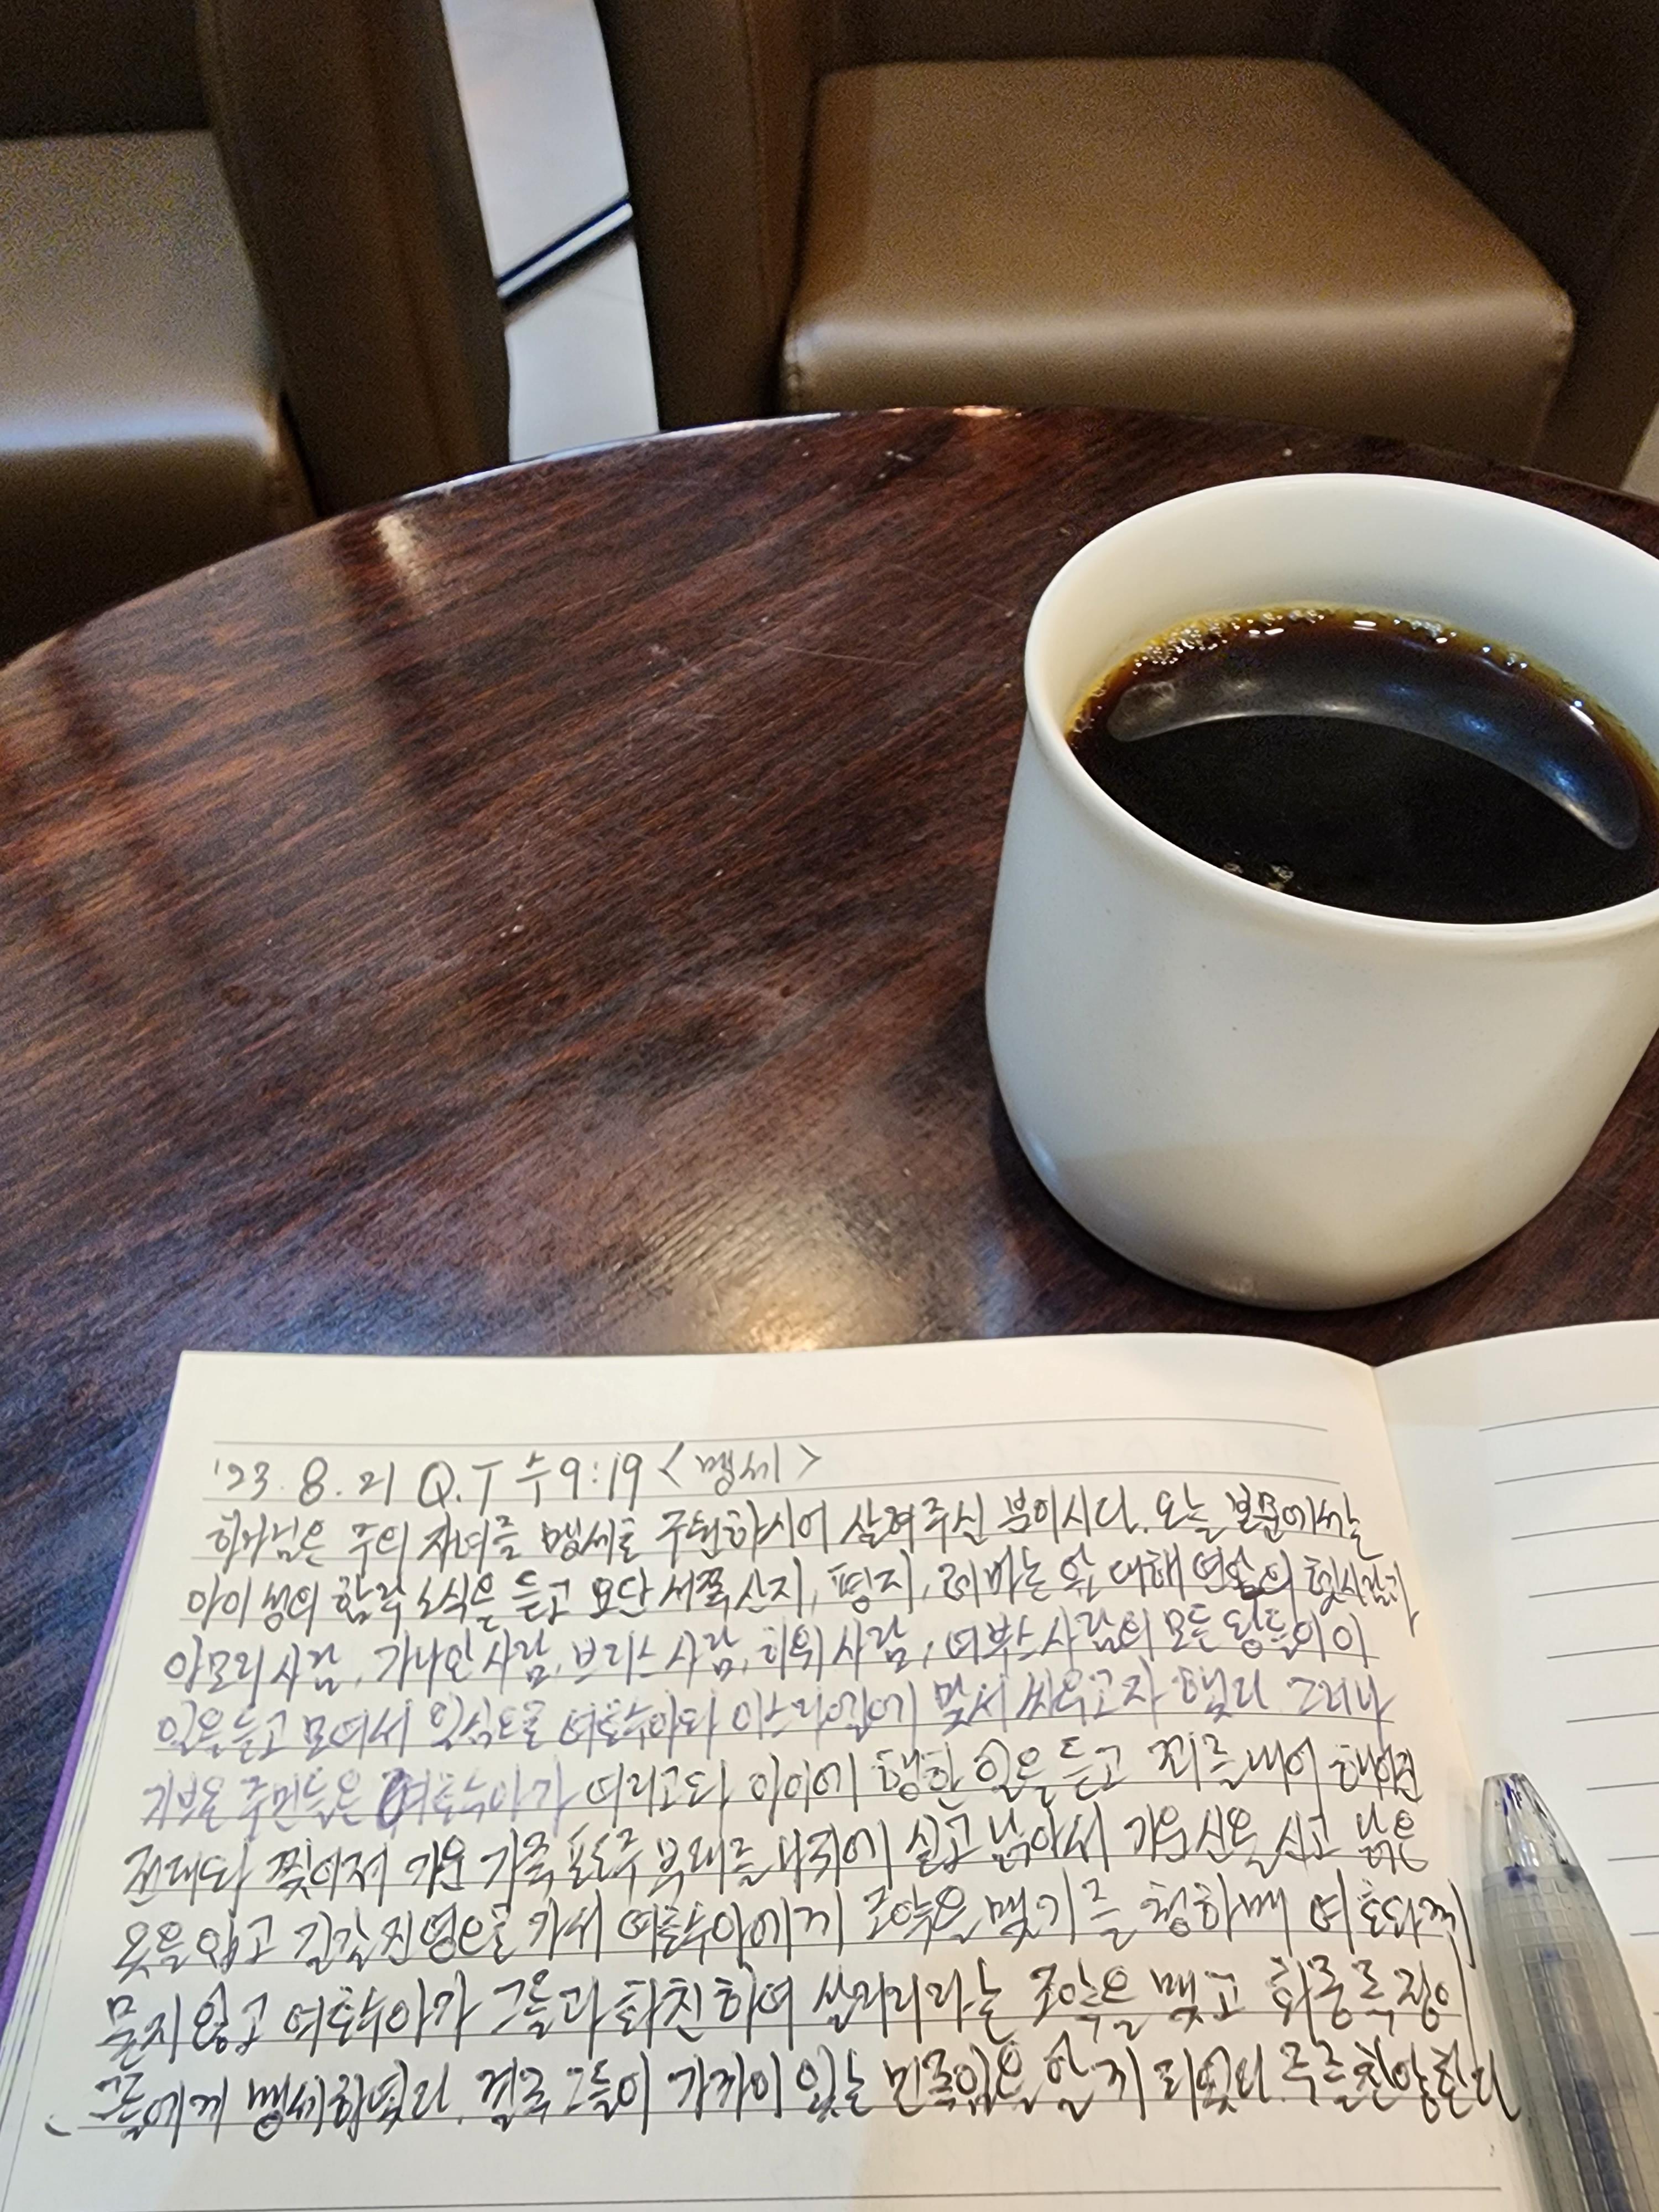 '23. 8. 21 Q.T 수9:19 <맹세>
하나님은 주의 자녀를 맹세로 구원하시어 살려주신 분이시다. 오늘 본문에서는
아이성의 함락 소식을 듣고 요단 서쪽 산지, 평지, 레바논 앞 대해 연안의 헷사람과
아모리사람, 가나안사람, 브리스사람, 히위사람, 여부스사람의 모든 왕들이 이
일을 듣고 모여서 일심으로 여호수아와 이스라엘에 맞서 싸우고자 했다. 그러나
기브온 주민들은 여호수아가 여리고와 아이에 행한 일을 듣고 꾀를 내어 해어진
전대와 찢어져 기운 가죽 포도주 부대를 나귀에 싣고 낡아서 기운 신을 신고 낡은
옷을 입고 길갈 진영으로 가서 여호수아에게 조약을 맺기를 청하매 여호와께
묻지 않고 여호수아가 그들과 화친하여 살리리라는 조약을 맺고 회중 족장이
그들에게 맹세하였다. 결국 그들이 가까이 있는 민족임을 알게 되었다. 주를 찬양한다